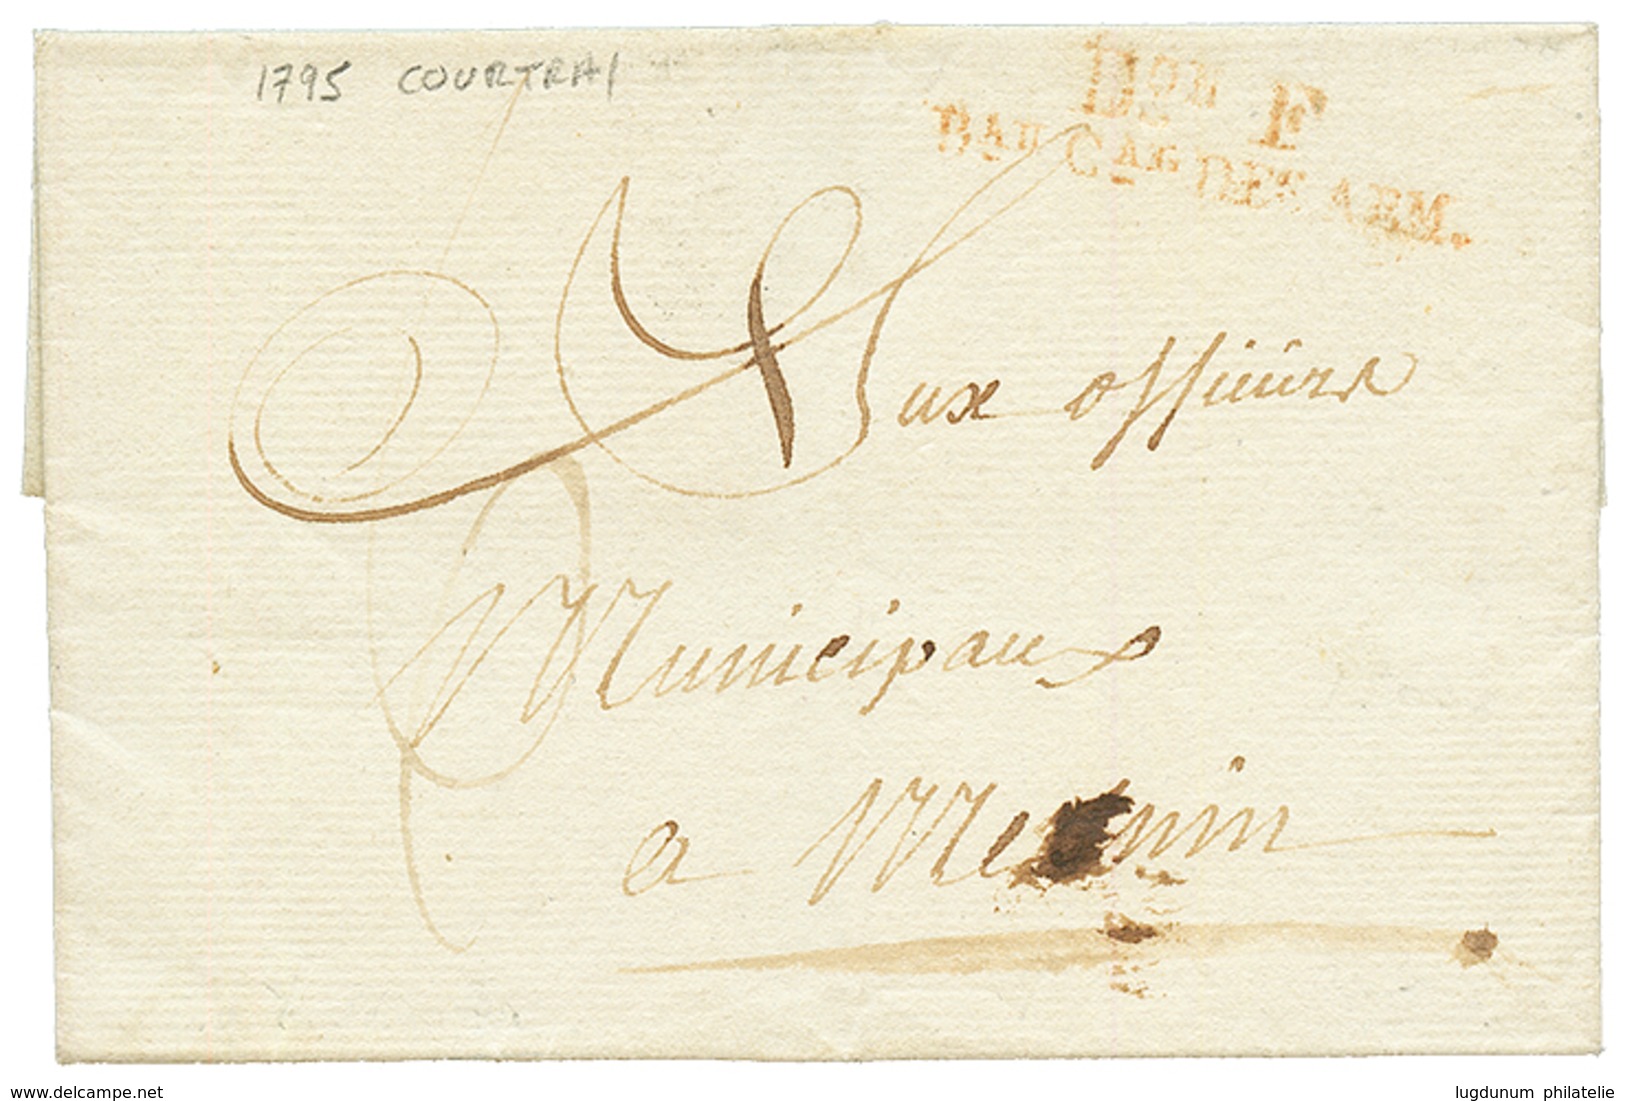 1795 COURTRAI
Don F
Bau Gal DES ARM.
Aux officiers
Municipaux
a Menin
www.delcampe.net
lugdunum philatelie